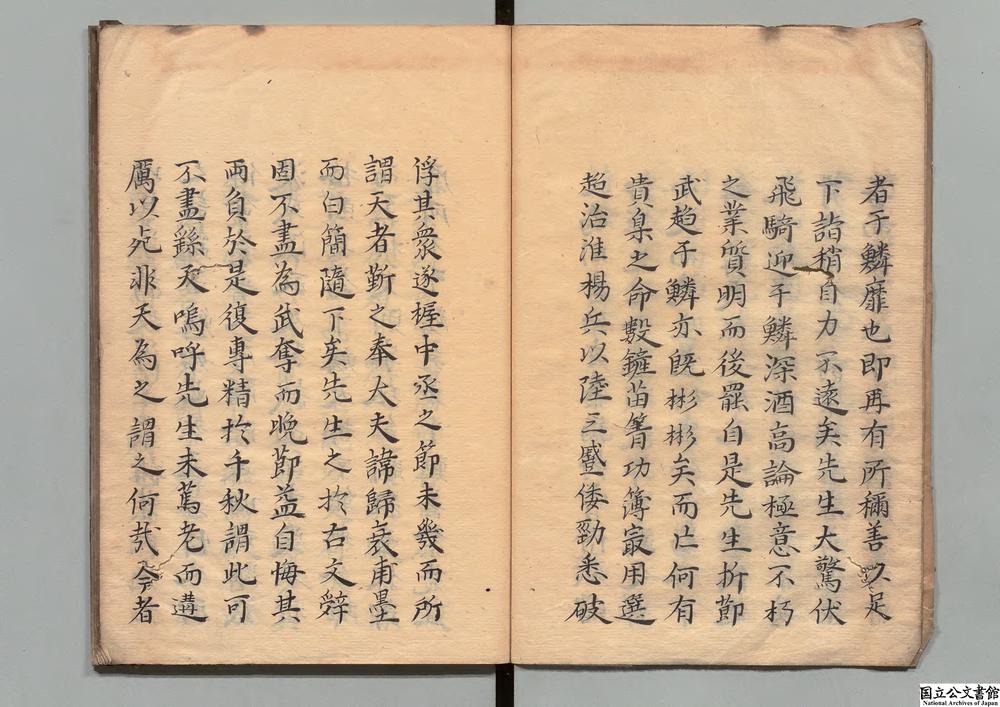 者于鱗靡也即再有所稱善以足
下詣稍自力不遠矣先生大驚伏
飛騎迎于鱗深酒高論極意不朽
之業質明而後罷自是先生折節
武趨于鱗亦既彬彬矣而亡何有
貴臬之命數鏟苗箐功簿㝡用選
超治淮楊兵以陸三蹙倭勁悉破
俘其衆遂握中丞之節未幾而所
謂天者斬之奉大夫諱歸衰甫墨
而白簡隨下矣先生之於右文辭
固不盡為武奪而晚節益自悔其
兩負於是復專精於千秋謂此可
不盡繇天嗚呼先生未蔫老而遘
厲以死非天為之謂之何哉今者
国立公文書館
National Archives of Japan